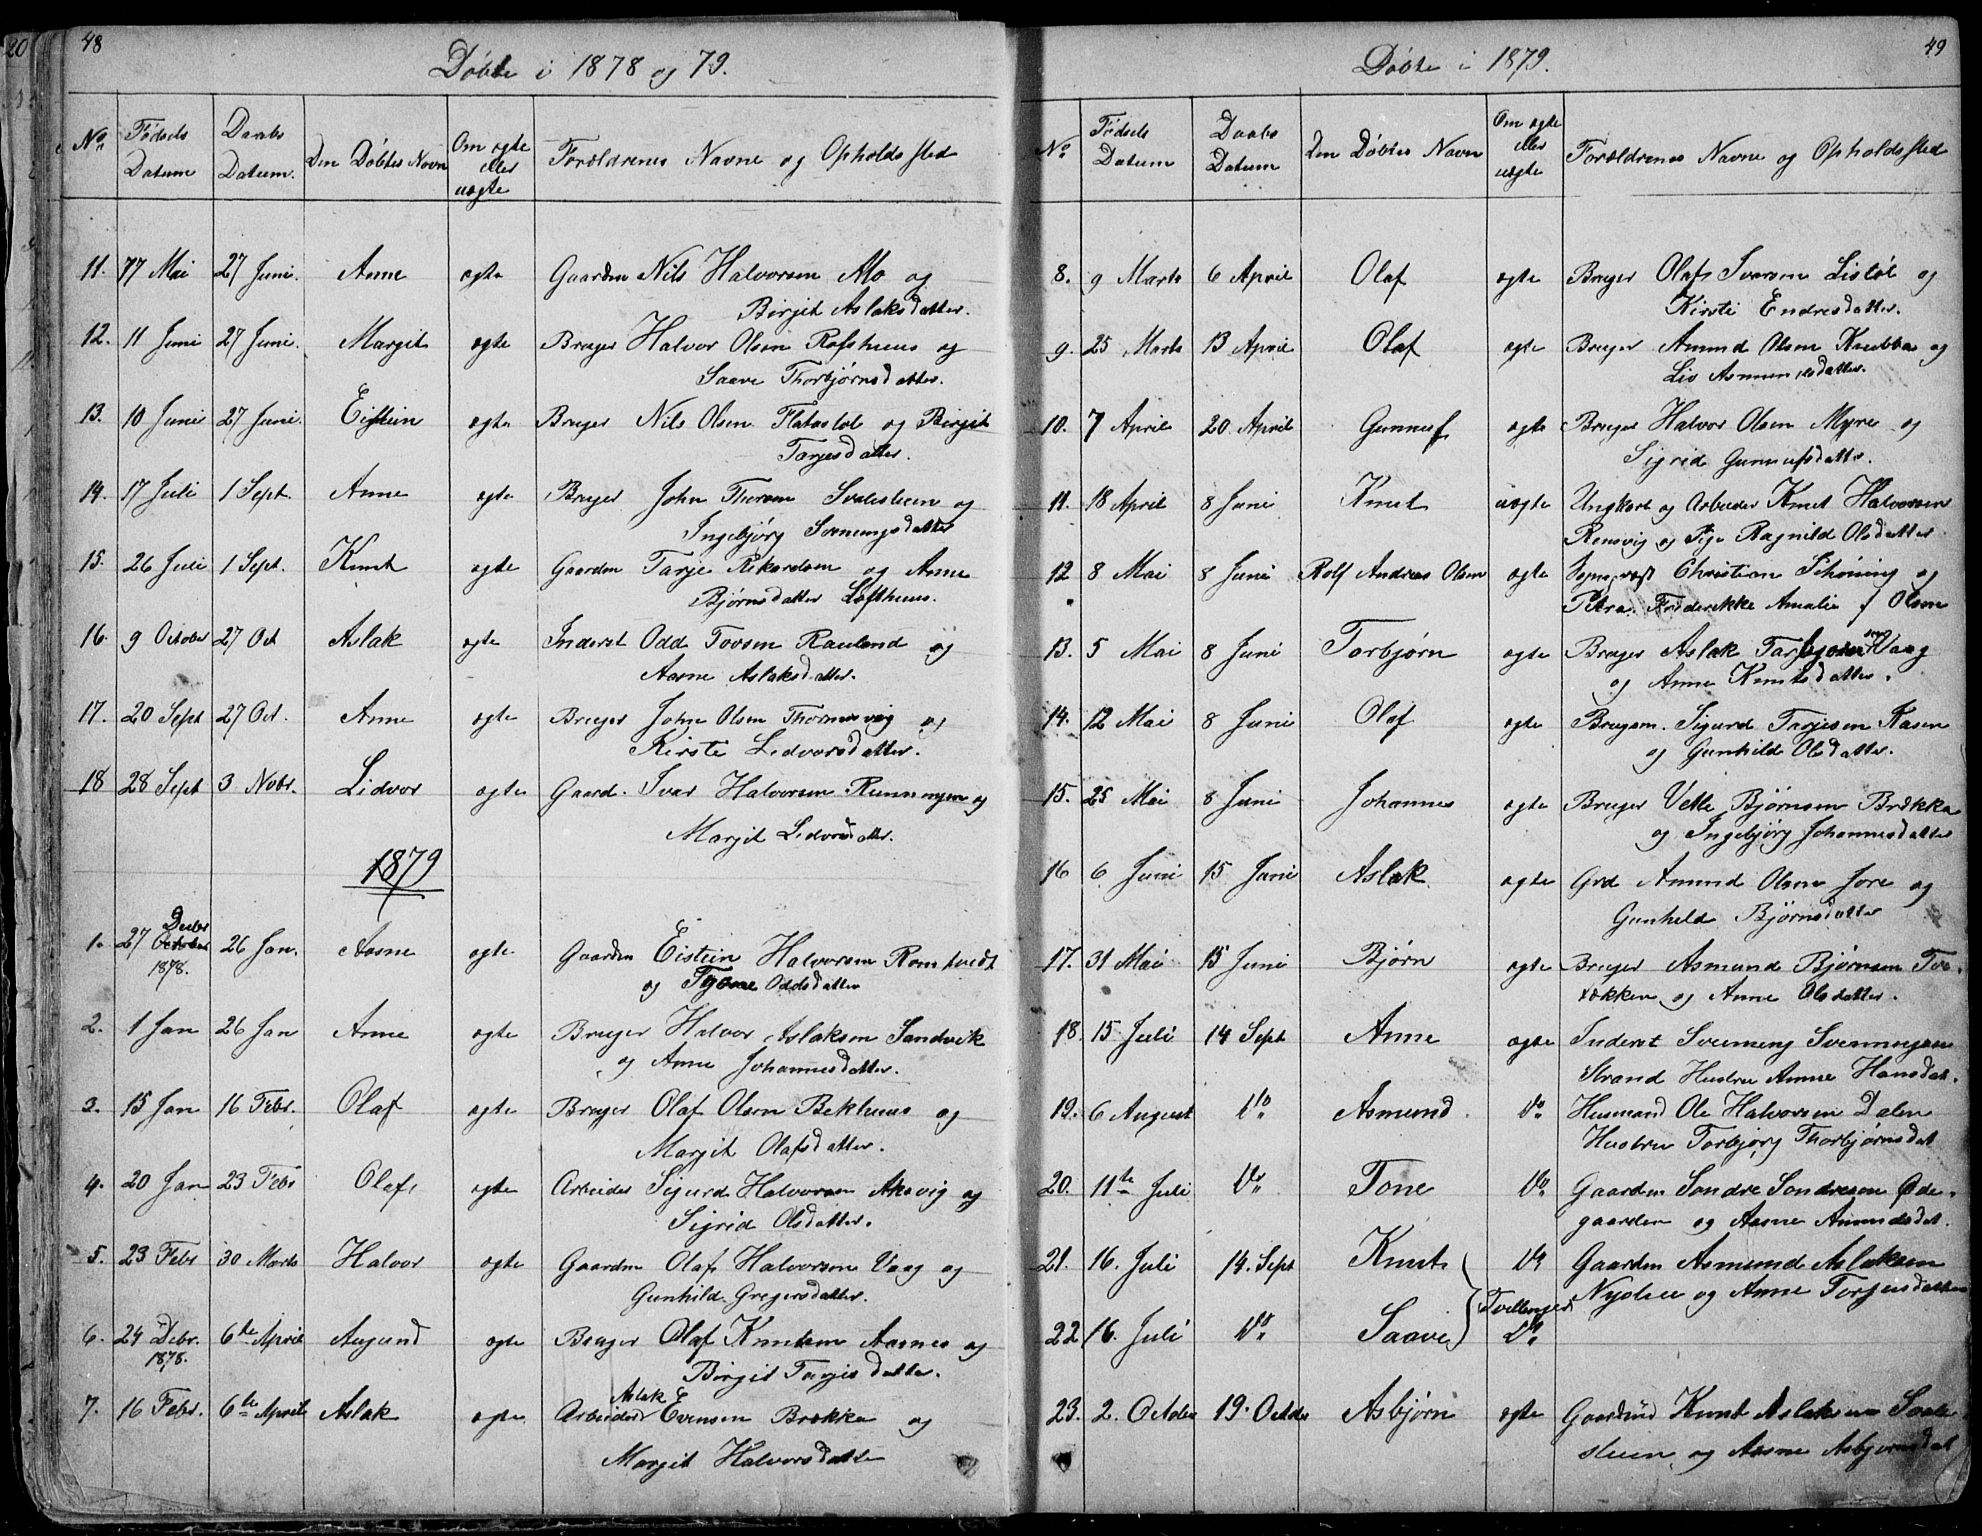 48
Døbte i 1878 og 79.
No. Fødsels Datum Daabs Datum. Den Døbtes Navn Om ægte eller uægte Forældrenes Navne og Opholdssted
11. 17 Mai 27 Juni. Anne ægte Gaardm Nils Halvorsen Mo og
Birgit Aslaksdatter.
12. 11 Juni 27 Juni. Margit ægte Bruger Halvor Olsen Rofshuus og
Saave Thorbjørnsdatter.
13. 10 Juni 27 Juni. Eistein ægte Bruger Nils Olsen Flatastøl og Birgit
Tarjesdatter.
14. 17 Juli 1 Sept. Anne ægte Bruger John Thorsen og
Ingebjørg Sveinungsdatter
15. 26 Juli 1 Sept. Knut ægte Gaardm Tarje Rikardsen og Anne
Bjørnsdatter Lofthuus.
16. 9 October 27 Oct Aslak ægte Inderst Odd Tovsen Rauland og
Aasne Aslaksdatter.
17. 20 Sept 27 Oct. Anne ægte Bruger John Olsen Thormsvig og
Kirste Lidvorsdatter.
18 28 Sept 3 Novbr. Lidvor ægte Gaard. Ivar Halvorsen Runningen og
Margit Lidvorsdatter.
1879
1. 27 Decbr 1878. 26 Jan. Aasne ægte Gaardm Eistein Halvorsen Romtvedt
og Tone Oddsdatter
2. 1 Jan 26 Jan Anne ægte Bruger Halvor Aslaksen Sandvik
og Anne Johannesdatter.
3. 15 Jan 16 Febr. Olaf ægte Bruger Olaf Olsen Bekhuus og
Margit Olafsdatter.
4. 20 Jan 23 Febr Olaf ægte Arbeider Sigurd Halvorsen Aksvig og
Sigrid Olsdatter.
5. 23 Febr 30 Marts Halvor ægte Gaardm Olaf Halvorsen Vaag og
Gunhild Gregersdatter.
6. 24 Debr. 1878. 6te April Augund ægte Bruger Olaf Knutsen Aasnes og
Birgit Tarjesdatter.
7. 16 Febr. 6te April Aslak ægte Arbeider Aslak Evensen Brække og
Margit Halvorsdatter
49
Døbte i 1879.
No Fødsels Datum Daabs Datum Den Døbtes Navn Om ægte eller uægte Forældrenes Navne og Opholdssted
8. 9 Marts 6 April Olaf ægte Bruger Olaf Ivarsen Listøl og
Kirsti Endresdatter.
9. 25 Marts 13 April Olaf ægte Bruger Amund Olsen Knubba og
Liv Asmundsdatter.
10. 7 April 20 April Gunnuf ægte Bruger Halvor Olsen Myre og
Sigrid Gunnufsdatter.
11. 18 April 8 Juni Knut uægte Ungkarl og Arbeider Knut Halvorsen
Rensvig og Pige Ragnild Olsdatter
12 8 Mai 8 Juni Rolf Andreas Olsen ægte Sogneprest Christian Schøning og
Petra Frederikke Amalie f Olsen
13. 5 Mai 8 Juni Torbjørn ægte Bruger Aslak Tarjesen Vaag
og Anne Knutsdatter.
14. 12 Mai 8 Juni Olaf ægte Brugem. Sigurd Tarjesen Kasen
og Gunhild Olsdatter.
15. 25 Mai 8 Juni Johannes ægte Bruger Vetle Bjørnsen Brække
og Ingebjørg Johannesdatter
16 6 Juni 15 Juni Aslak ægte Grd Amund Olsen Jore og
Gunhild Bjørnsdatter
17. 31 Mai 15 Juni Bjørn ægte Bruger Asmund Bjørnsen
og Anne Olsdatter.
18. 15 Juli 14 Sept Anne ægte Inderst Sveinung Sveinungsen
Strand Hustru Anne Hansdat.
19. 6 August Do Asmund Do Husmand Ole Halvorsen Dalen
Hustru Torbjørg Thorbjørnsdat
20. 11te Juli Do Tone Do Gaardm Sondre Sondresen Øde-
gaarden og Aasne Amundsdat.
21. 16. Juli 14. Sept Knut Do Gaardm Asmund Aslaksen
Tvillinger Nystue og Anne Torjusdatter
22 16. Juli Do Saave Do
23. 2. October 19. Octbr Asbjørn ægte Gaardmd Knut Aslaksen
og Aasne Asbjørnsdat